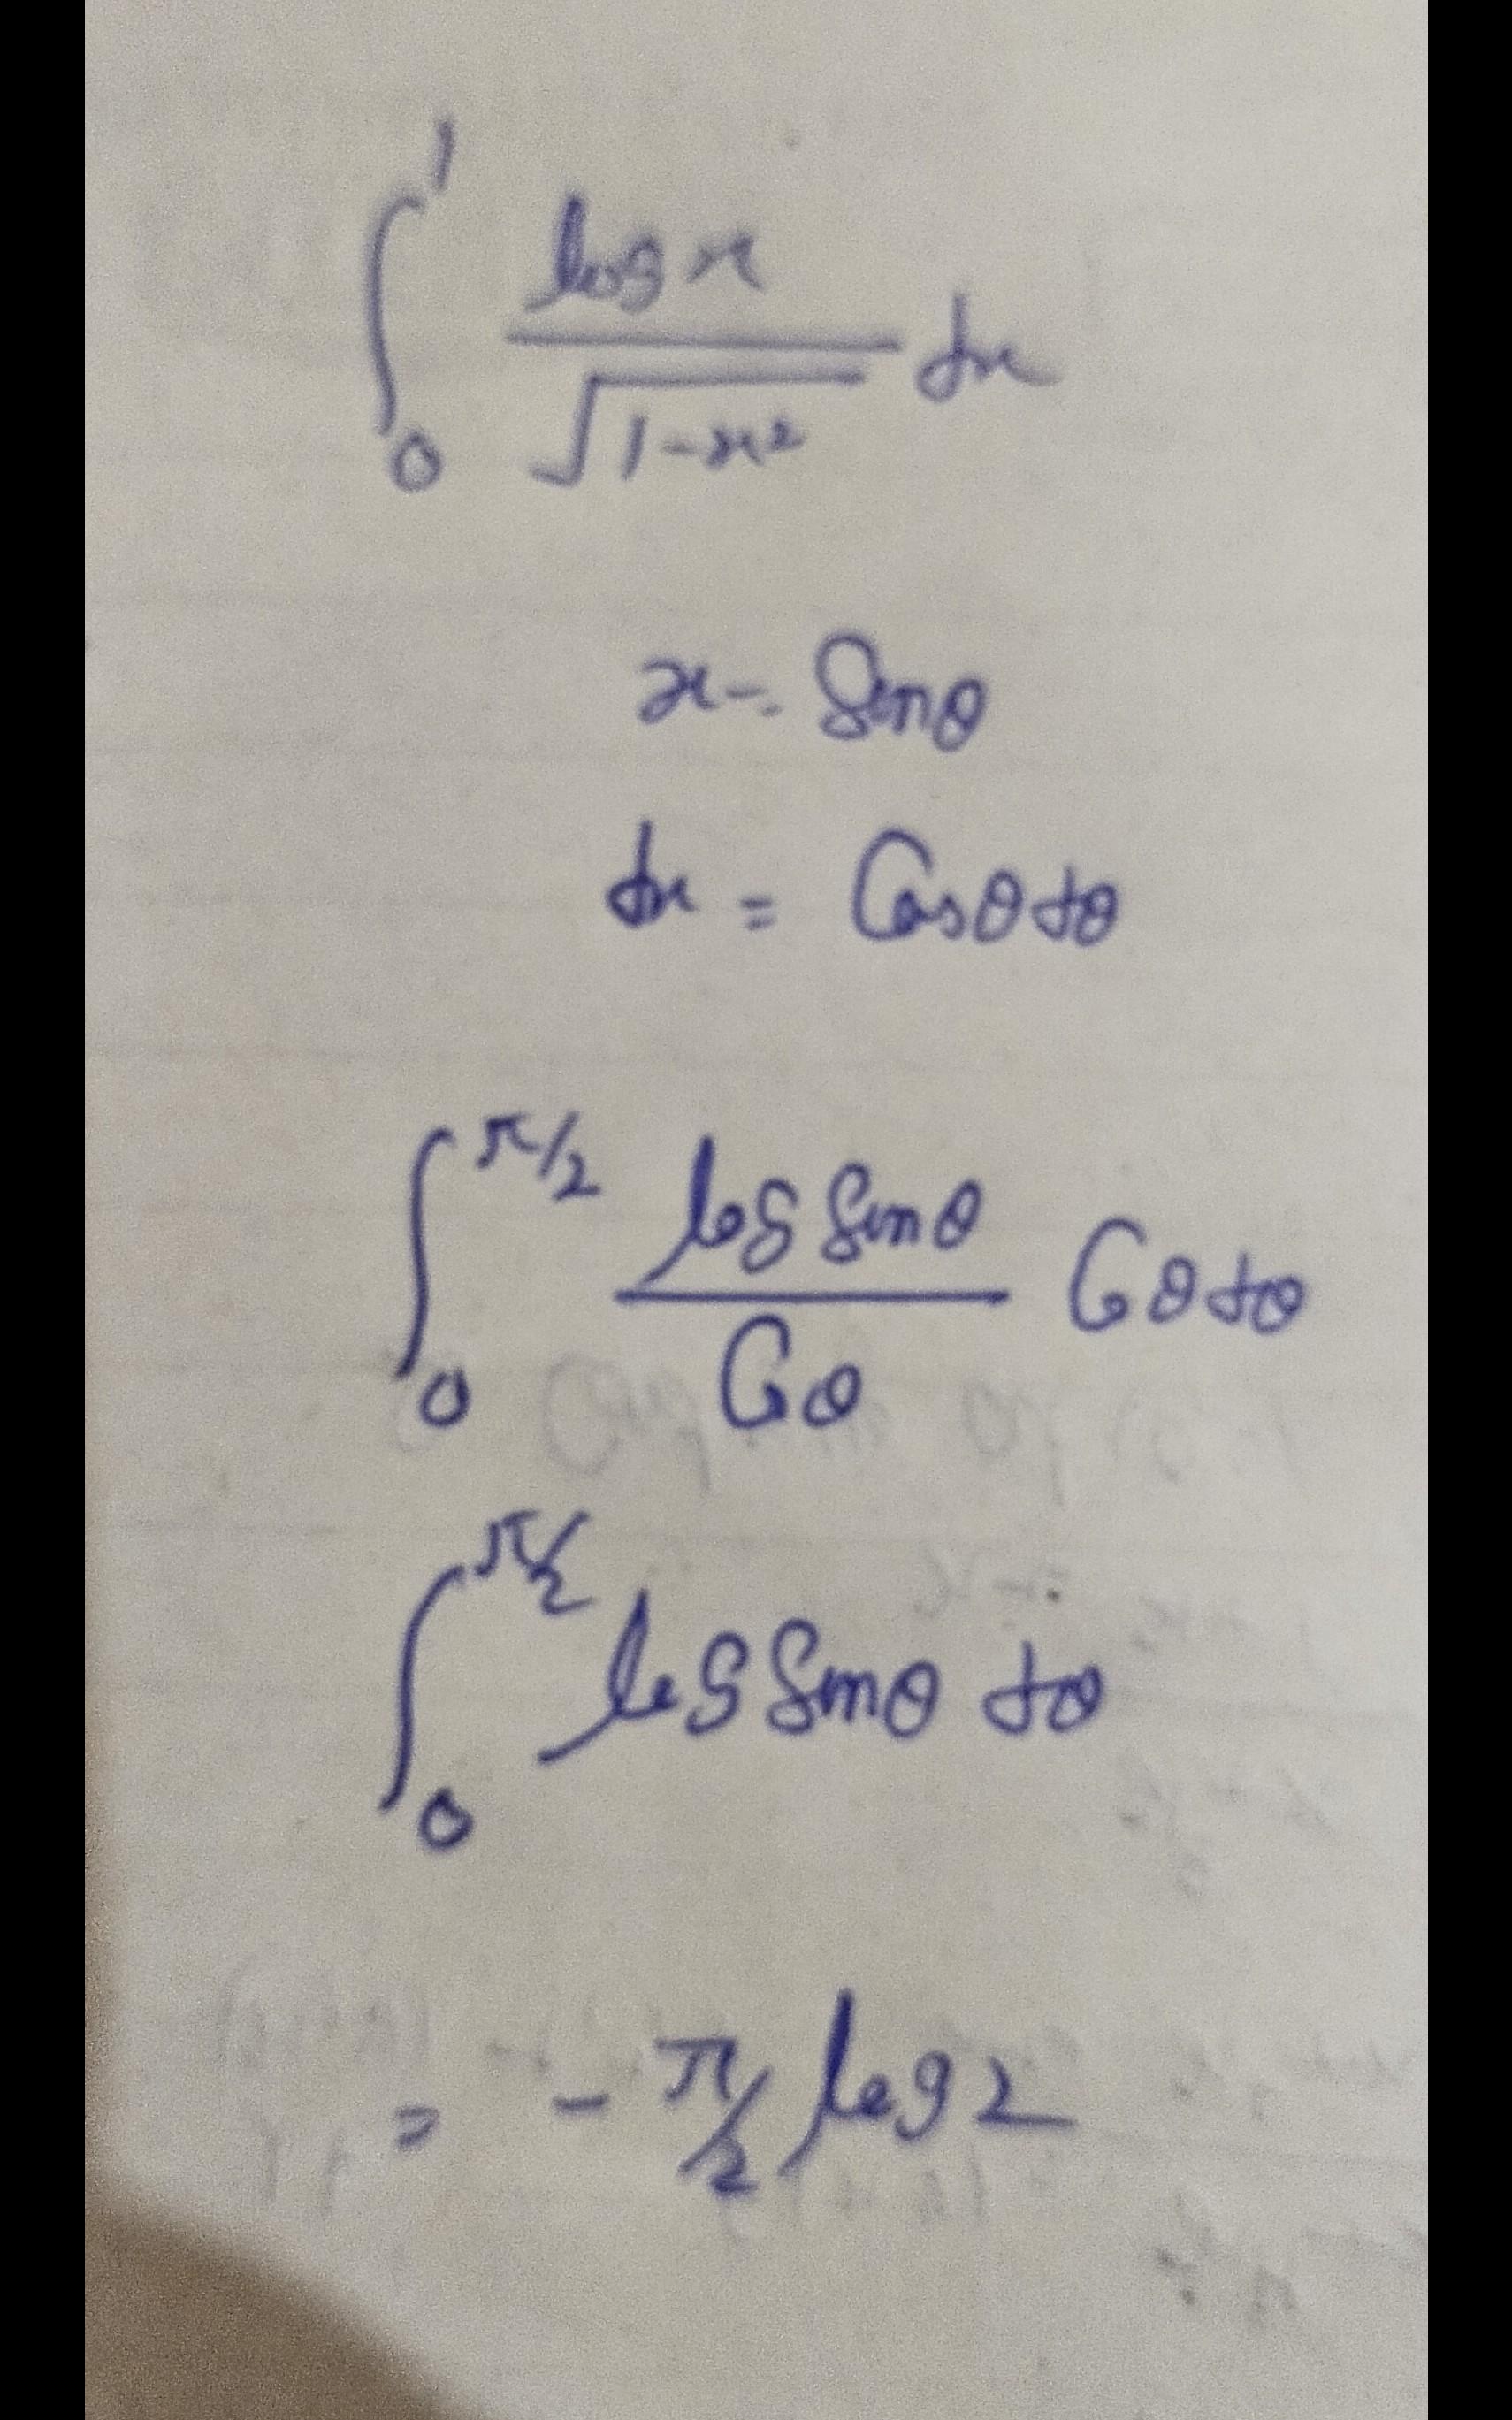 ∫₀¹ log x / √(1-x²) dx
x = Sinθ
dx = Cosθ dθ
∫₀^π/2 log Sinθ / Cosθ Cosθ dθ
∫₀^π/2 log Sinθ dθ
= - π/2 log 2